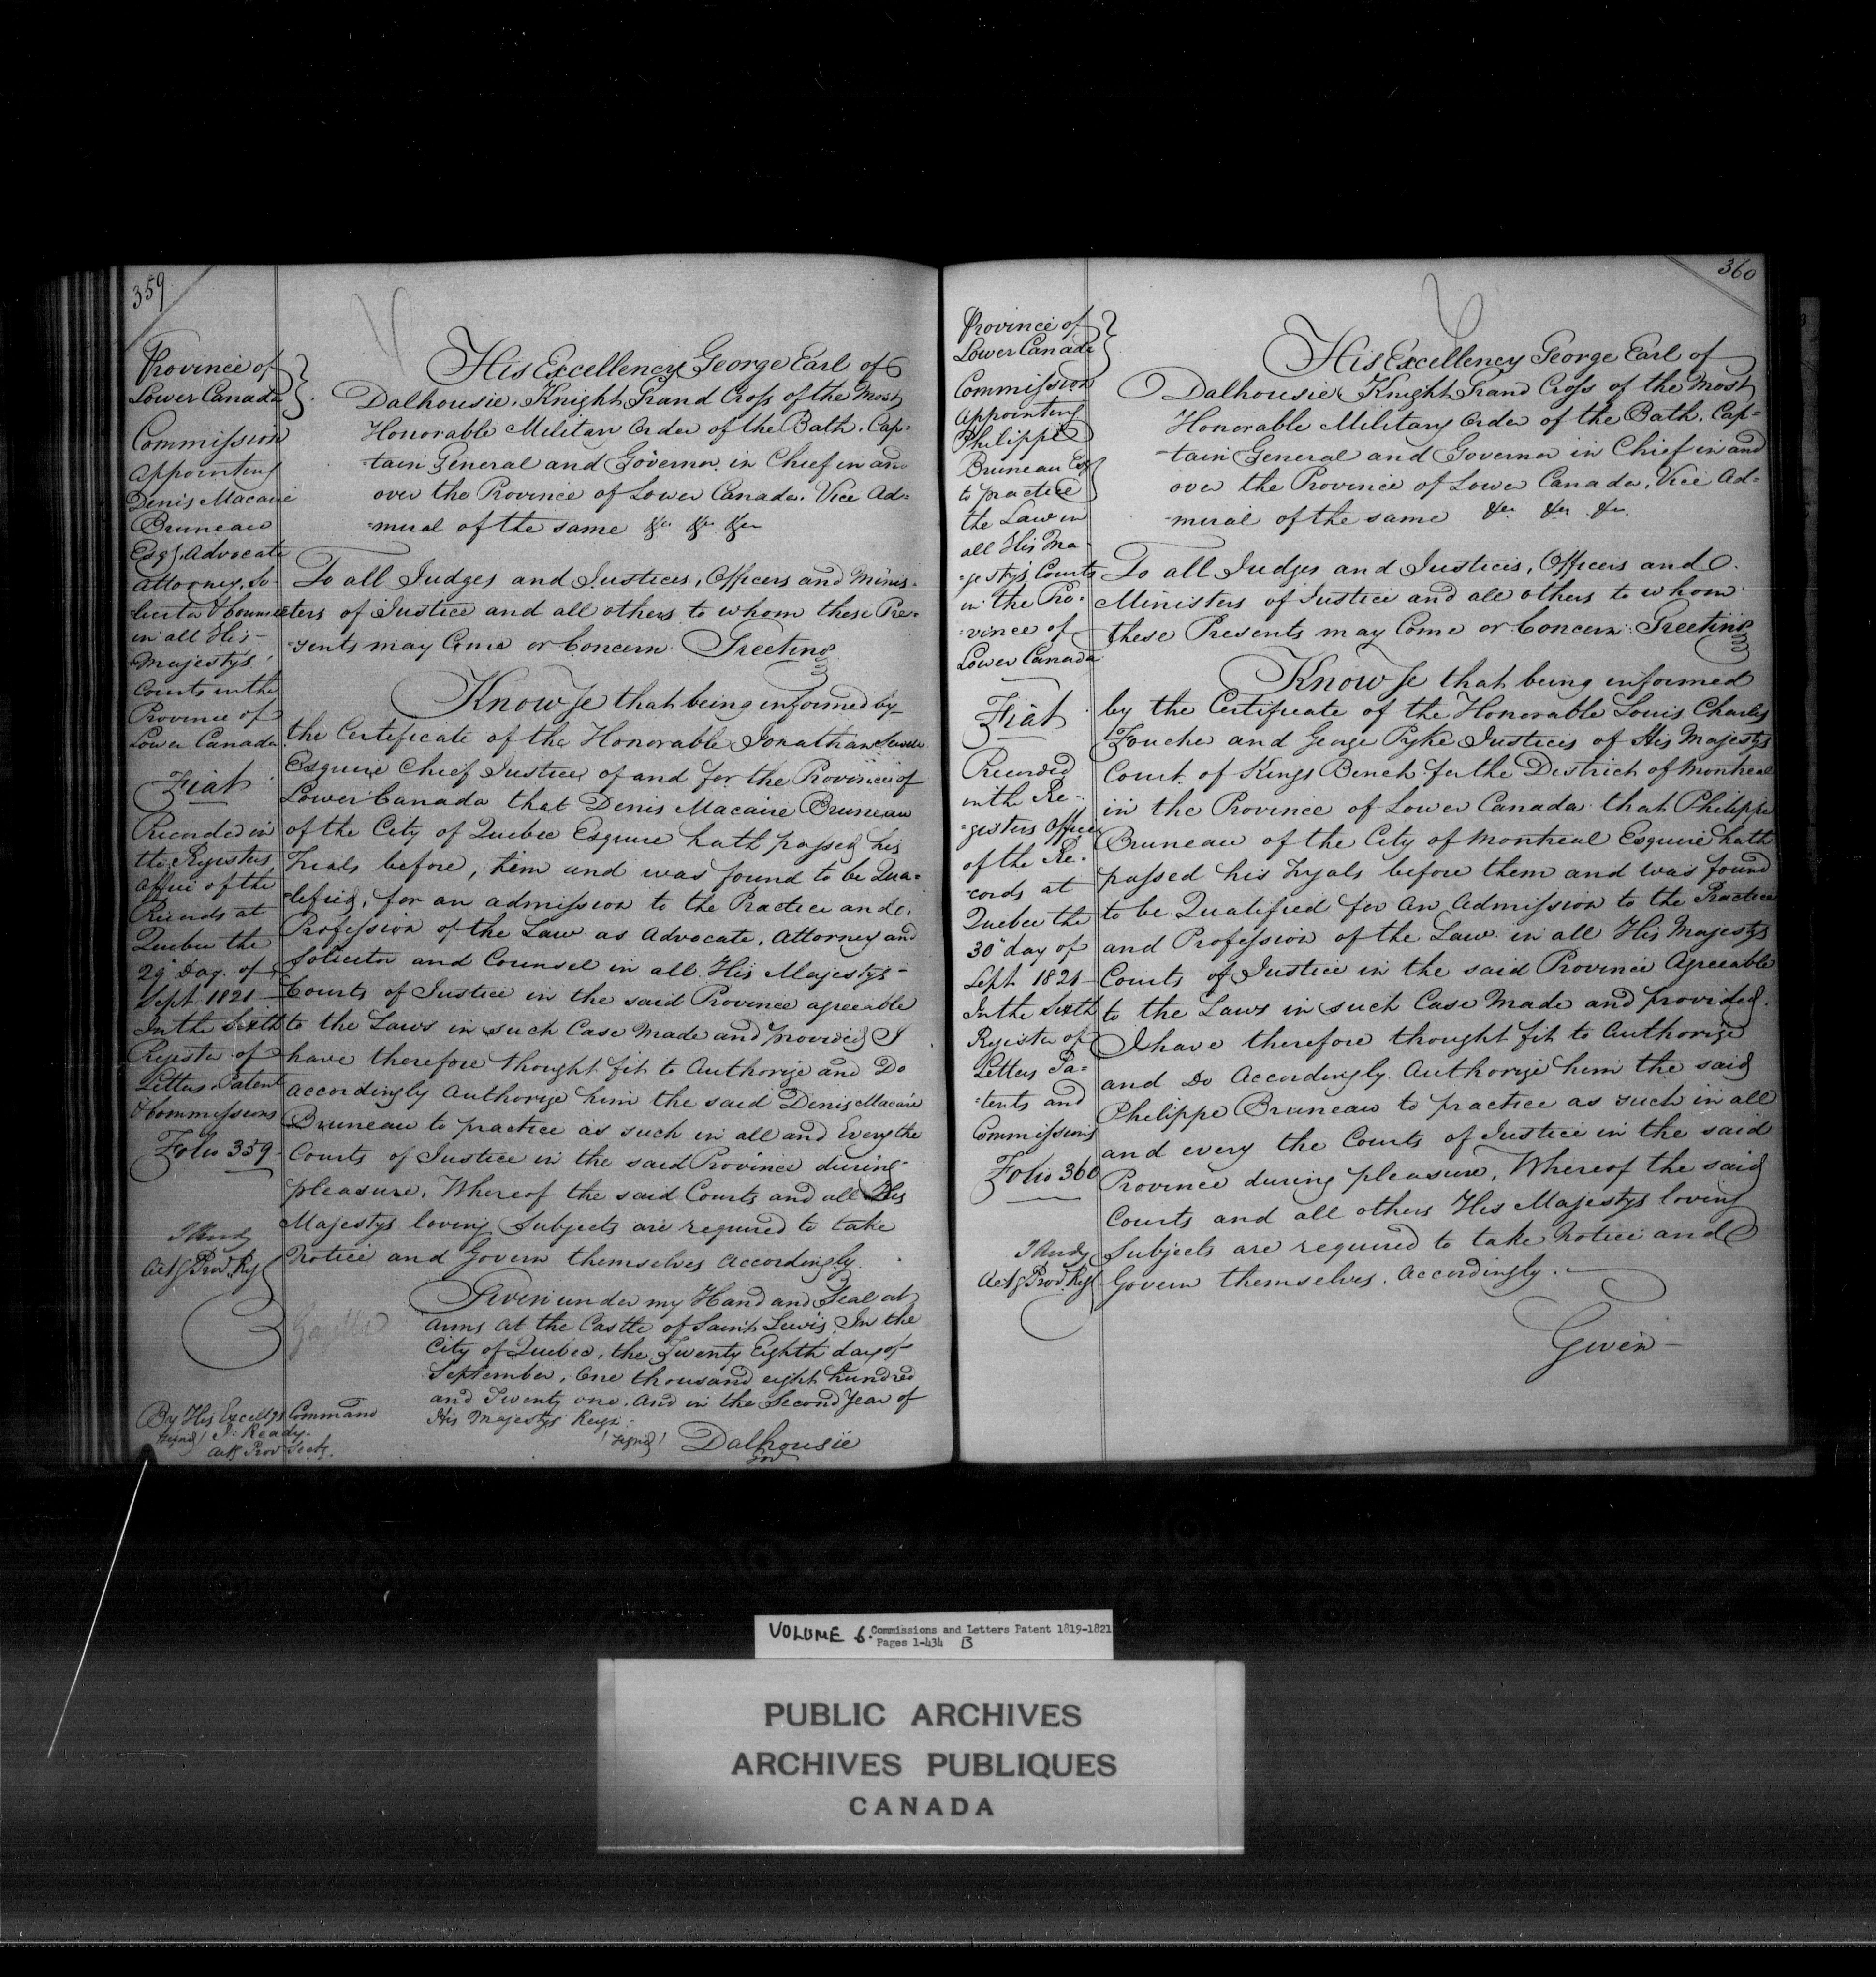 359
Province of
Lower Canada
Commission
Appointing
Denis Macaire
Bruneau
Esqr. Advocate
Attorney, So-
licitor & Counsel
in all His
Majestys
Courts in the
Province of
Lower Canada
Fiat
Recorded in
the Registers
Office of the
Records at
Quebec the
29th Day of
Sept. 1821
In the Sixth
Register of
Letters Patent
& Commissions
Folio 359
Actg Prov. Reg
His Excellency George Earl of
Dalhousie, Knight Grand Cross of the Most
Honorable Militar Order of the Bath, Cap-
-tain General and Governor in Chief in and
over the Province of Lower Canada, Vice Ad-
-miral of the same &c &c &c
To all Judges and Justices, Officers and Minis-
ters of Justice and all others to whom these Pre-
-sents may Come or Concern Greeting
Know Ye that being informed by
the Certificate of the Honorable Jonathan Sewell
Esquire Chief Justice of and for the Province of
Lower Canada that Denis Macaire Bruneau
of the City of Quebec Esquire hath passed his
Trials before him and was found to be Qua-
-lified, for an admission to the Practice and
Profession of the Law as Advocate, Attorney and
Solicitor and Counsel in all His Majestys
Courts of Justice in the said Province agreeable
to the Laws in such Case Made and provided I
have therefore thought fit to Authorize and Do
accordingly Authorize him the said Denis Macaire
Bruneau to practice as such in all and Every the
Courts of Justice in the said Province during
pleasure, Whereof the said Courts and all His
Majestys loving Subjects are required to take
Notice and Govern themselves Accordingly.
Gazette
Given under my Hand and Seal at
Arms at the Castle of Saint Lewis, In the
City of Quebec, the Twenty Eighth day of
September, One thousand eight hundred
and Twenty one, And in the Second Year of
His Majestys Reign
(signed) Dalhousie
Gov
By His Excellys Command
(signed) J: Ready
Actg Prov Secty.
360
Province of
Lower Canada
Commission
Appointing
Philippe
Bruneau Esqr
to practice
the Law in
all His Ma-
-jestys Courts
in the Pro-
-vince of
Lower Canada
Fiat
Recorded
in the Re-
-gisters Office
of the Re-
-cords at
Quebec the
30th day of
Sept 1821
In the Sixth
Register of
Letters Pa-
-tents and
Commissions
Folio 360
Actg Prov. Reg
His Excellency George Earl of
Dalhousie Knight Grand Cross of the Most
Honorable Military Order of the Bath, Cap-
-tain General and Governor in Chief in and
over the Province of Lower Canada, Vice Ad-
-miral of the same &c &c &c.
To all Judges and Justices, Officers and
Ministers of Justice and all others to whom
these Presents may Come or Concern: Greeting
Know Ye that being informed
by the Certificate of the Honorable Louis Charles
Foucher and George Pyke Justices of His Majestys
Court of Kings Bench for the District of Montreal
in the Province of Lower Canada that Philippe
Bruneau of the City of Montreal Esquire hath
passed his Tryals before them and was found
to be Qualified for An Admission to the Practice
and Profession of the Law in all His Majestys
Courts of Justice in the said Province Agreeable
to the Laws in such Case Made and provided.
I have therefore thought fit to Authorize
and Do Accordingly Authorize him the said
Philippe Bruneau to practice as such in all
and every the Courts of Justice in the said
Province during pleasure, Whereof the said
Courts and all others His Majestys loving
Subjects are required to take Notice and
Govern themselves Accordingly.
Given
VOLUME 6. Commissions and Letters Patent 1819-1821
Pages 1-434 B
PUBLIC ARCHIVES
ARCHIVES PUBLIQUES
CANADA